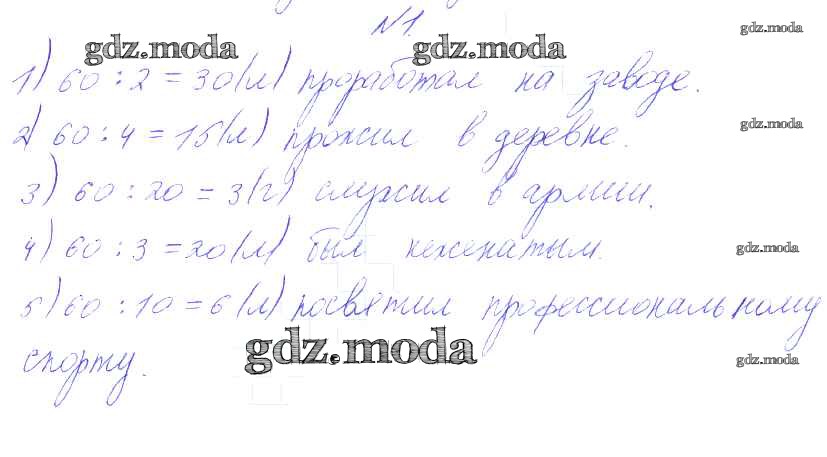 №1.
gdz.moda gdz.moda gdz.moda
1) 60 : 2 = 30 (л) проработал на заводе.
2) 60 : 4 = 15 (л) прожил в деревне. gdz.moda
3) 60 : 20 = 3 (г) служил в армии.
4) 60 : 3 = 20 (л) был неженатым. gdz.moda
5) 60 : 10 = 6 (л) посвятил профессиональному
gdz.moda
спорту. gdz.moda